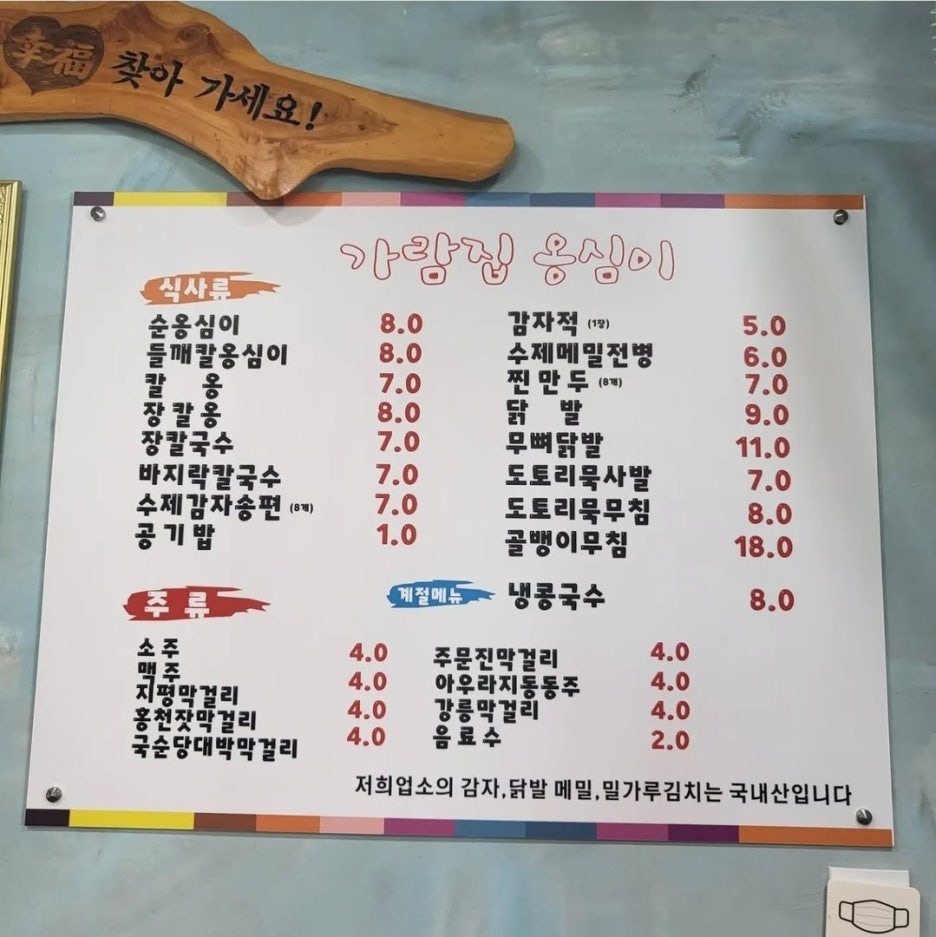 幸福 찾아 가세요!
가람집 옹심이
식사류
순옹심이 8.0
들깨칼옹심이 8.0
칼 옹 7.0
장칼옹 8.0
장칼국수 7.0
바지락칼국수 7.0
수제감자송편 (8개) 7.0
공기밥 1.0
감자적 (1장) 5.0
수제메밀전병 6.0
찐만두 (8개) 7.0
닭 발 9.0
무뼈닭발 11.0
도토리묵사발 7.0
도토리묵무침 8.0
골뱅이무침 18.0
계절메뉴 냉콩국수 8.0
주류
소주 4.0
맥주
지평막걸리 4.0
홍천잣막걸리 4.0
국순당대박막걸리 4.0
주문진막걸리 4.0
아우라지동동주 4.0
강릉막걸리 4.0
음료수 2.0
저희업소의 감자,닭발 메밀,밀가루김치는 국내산입니다